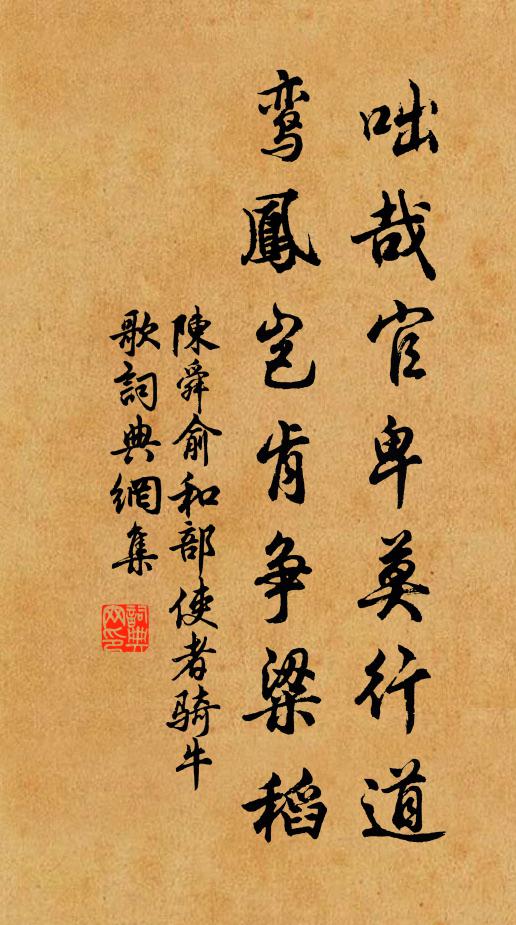 咄哉官卑莫行道
鸾鳳岂肯争粱稻
陳舜俞和部使者骑牛
歌詞典網集
詞典网印